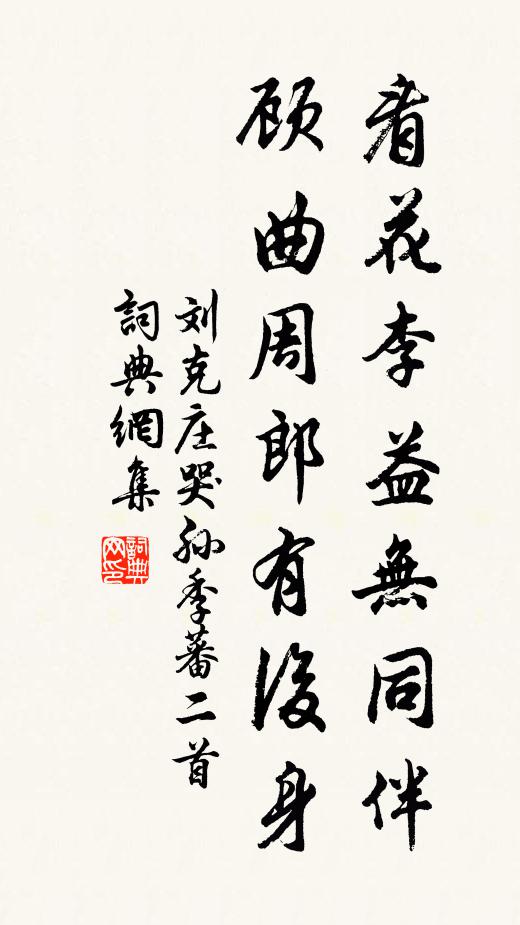 看花李益無同伴
顾曲周郎有後身
刘克庄哭孙季蕃二首
詞典網集
詞典
网印